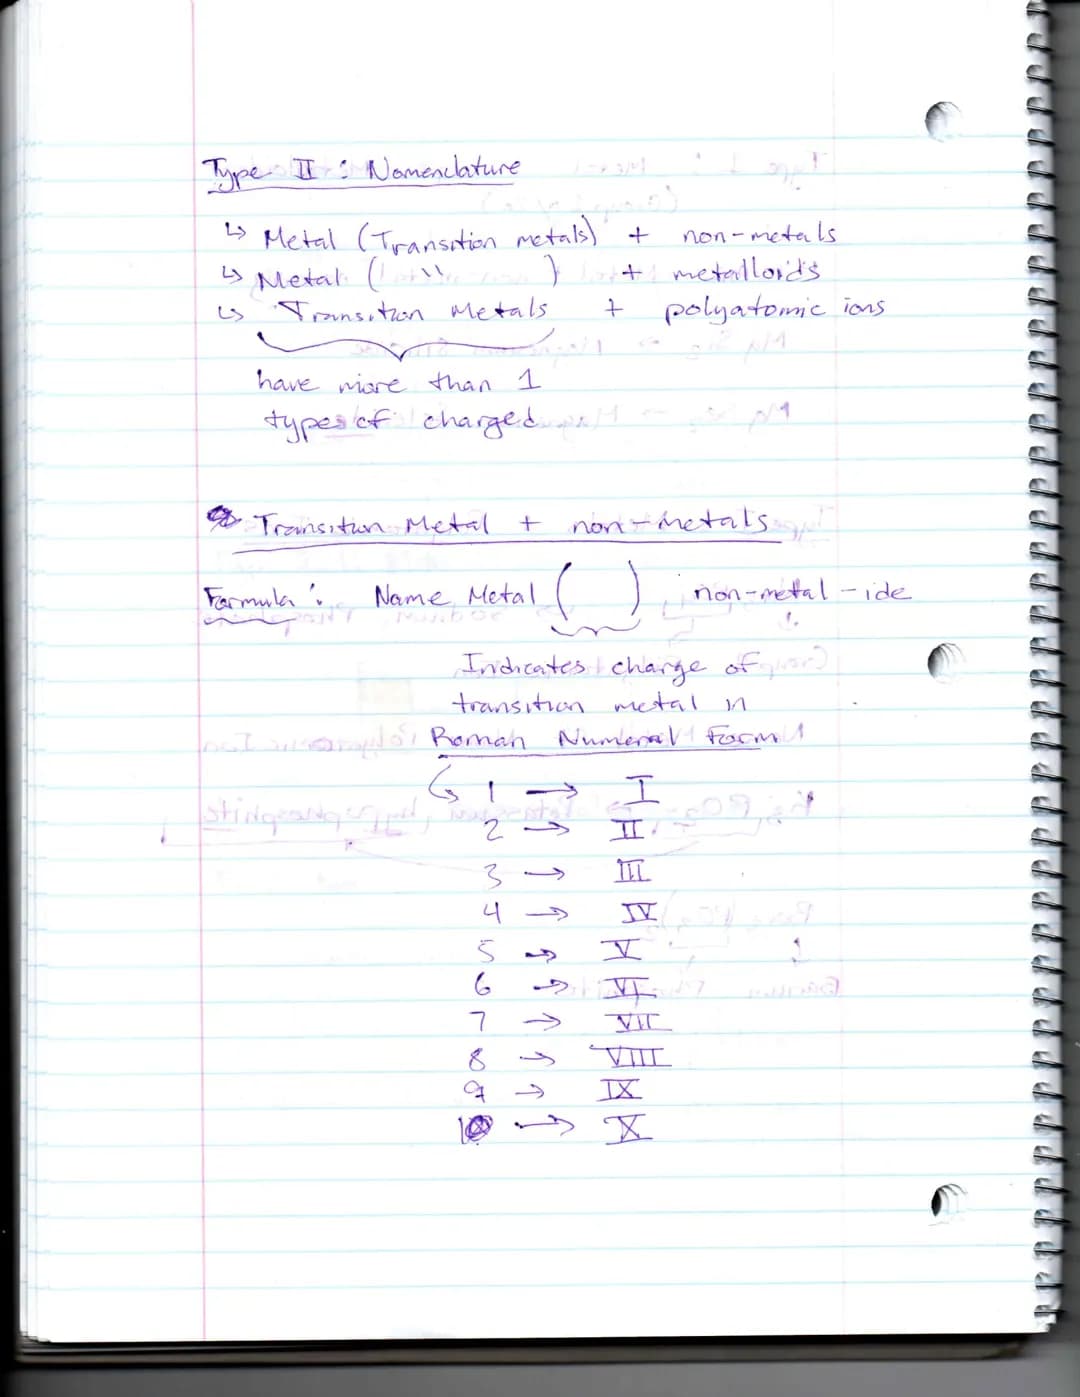 Type II : Nomenclature
↳ Metal (Transition metals) + non-metals
↳ Metal ( \\ ) + metalloids
↳ Transition Metals + polyatomic ions
have more than 1
types of charged
Transition Metal + non-metals
Formula : Name Metal ( ) non-metal - ide
Indicates charge of
transition metal in
Roman Numeral Form
1 → I
2 → II
3 → III
4 → IV
5 → V
6 → VI
7 → VII
8 → VIII
9 → IX
10 → X